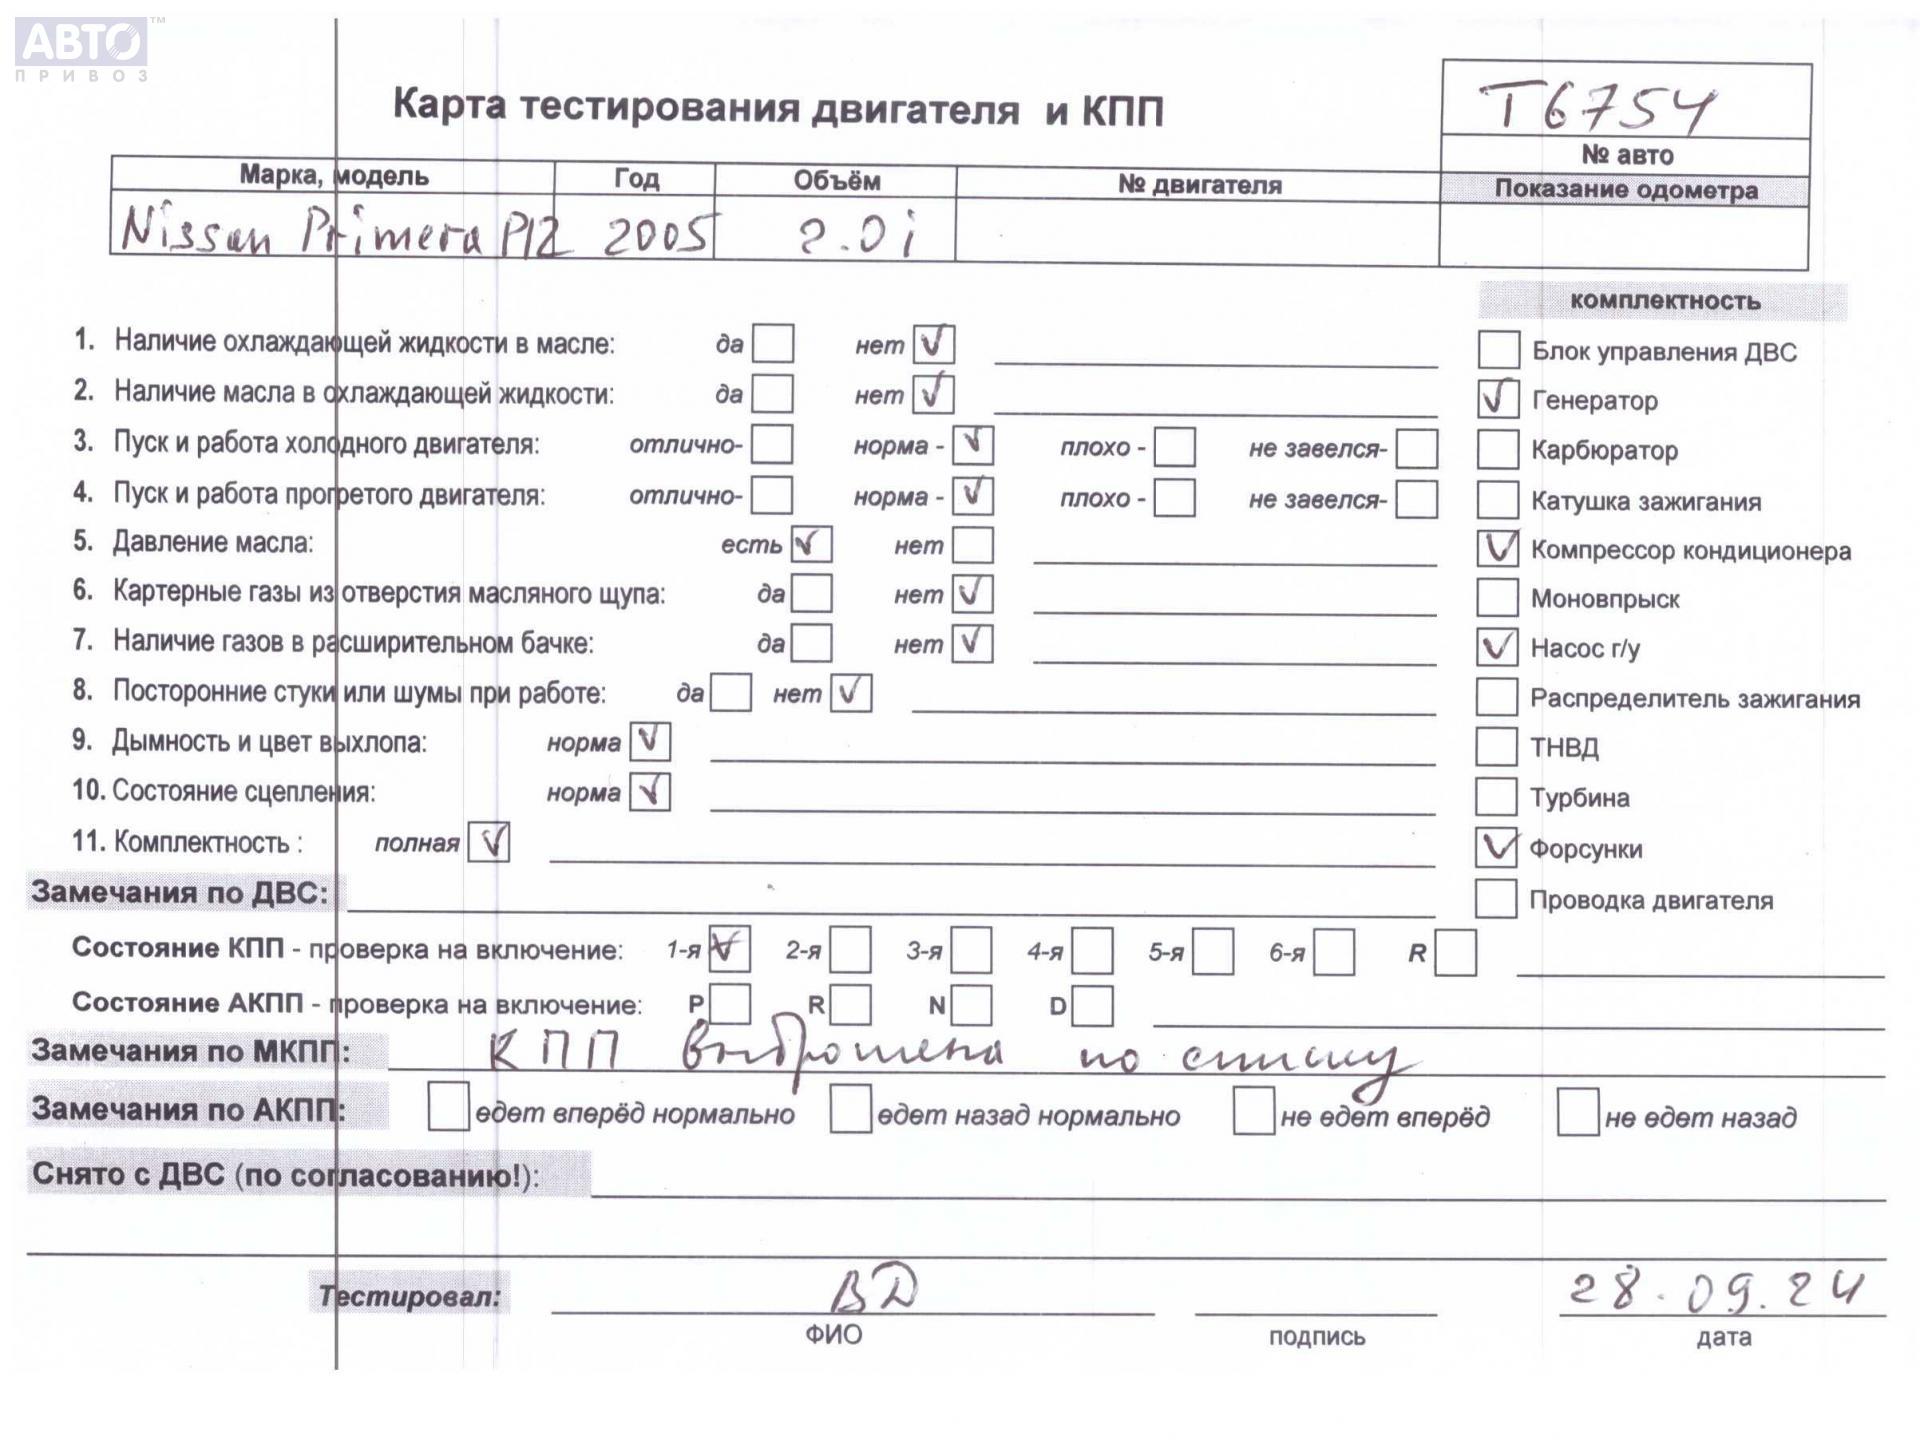 АВТО™
ПРИВОЗ
Карта тестирования двигателя и КПП
Т6754
№ авто
Марка, модель Год Объём № двигателя Показание одометра
Nissan Primera P12 2005 2.0i
комплектность
1. Наличие охлаждающей жидкости в масле: да нет ✓ Блок управления ДВС
2. Наличие масла в охлаждающей жидкости: да нет ✓ ✓ Генератор
3. Пуск и работа холодного двигателя: отлично- норма - ✓ плохо - не завелся- Карбюратор
4. Пуск и работа прогретого двигателя: отлично- норма - ✓ плохо - не завелся- Катушка зажигания
5. Давление масла: есть ✓ нет ✓ Компрессор кондиционера
6. Картерные газы из отверстия масляного щупа: да нет ✓ Моновпрыск
7. Наличие газов в расширительном бачке: да нет ✓ ✓ Насос г/у
8. Посторонние стуки или шумы при работе: да нет ✓ Распределитель зажигания
9. Дымность и цвет выхлопа: норма ✓ ТНВД
10. Состояние сцепления: норма ✓ Турбина
11. Комплектность : полная ✓ ✓ Форсунки
Замечания по ДВС: Проводка двигателя
Состояние КПП - проверка на включение: 1-я ✓ 2-я 3-я 4-я 5-я 6-я R
Состояние АКПП - проверка на включение: P R N D
Замечания по МКПП: КПП выброшена по списку
Замечания по АКПП: едет вперёд нормально едет назад нормально не едет вперёд не едет назад
Снято с ДВС (по согласованию!):
Тестировал: ВД 28.09.24
ФИО подпись дата